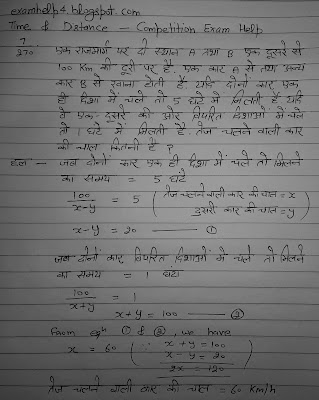 examhelp4.blogspot.com
Time & Distance — Competition Exam Help
एक राजमार्ग पर दो स्थान A तथा B एक दूसरे से
100 Km की दूरी पर है. एक कार A से तथा अन्य
कार B से रवाना होती है. यदि दोनों कार एक
ही दिशा में चले तो 5 घंटे में मिलती है यदि
वे एक-दूसरे की ओर विपरित दिशाओं में चले
तो 1 घंटे में मिलती है. तेज चलने वाली कार
की चाल कितनी है ?
हल — जब दोनों कार एक ही दिशा में चले तो मिलने
का समय = 5 घंटे
100/x-y = 5 ( तेज चलने वाली कार की चाल = x
दुसरी कार की चाल = y )
x-y = 20 — ①
जब दोनों कार विपरित दिशाओं में चले तो मिलने
का समय = 1 घंटा
100/x+y = 1
x+y = 100 — ②
From eqn ① & ②, we have
x = 60 ( ∵ x+y = 100
x-y = 20
2x = 120 )
तेज चलने वाली कार की चाल = 60 Km/h